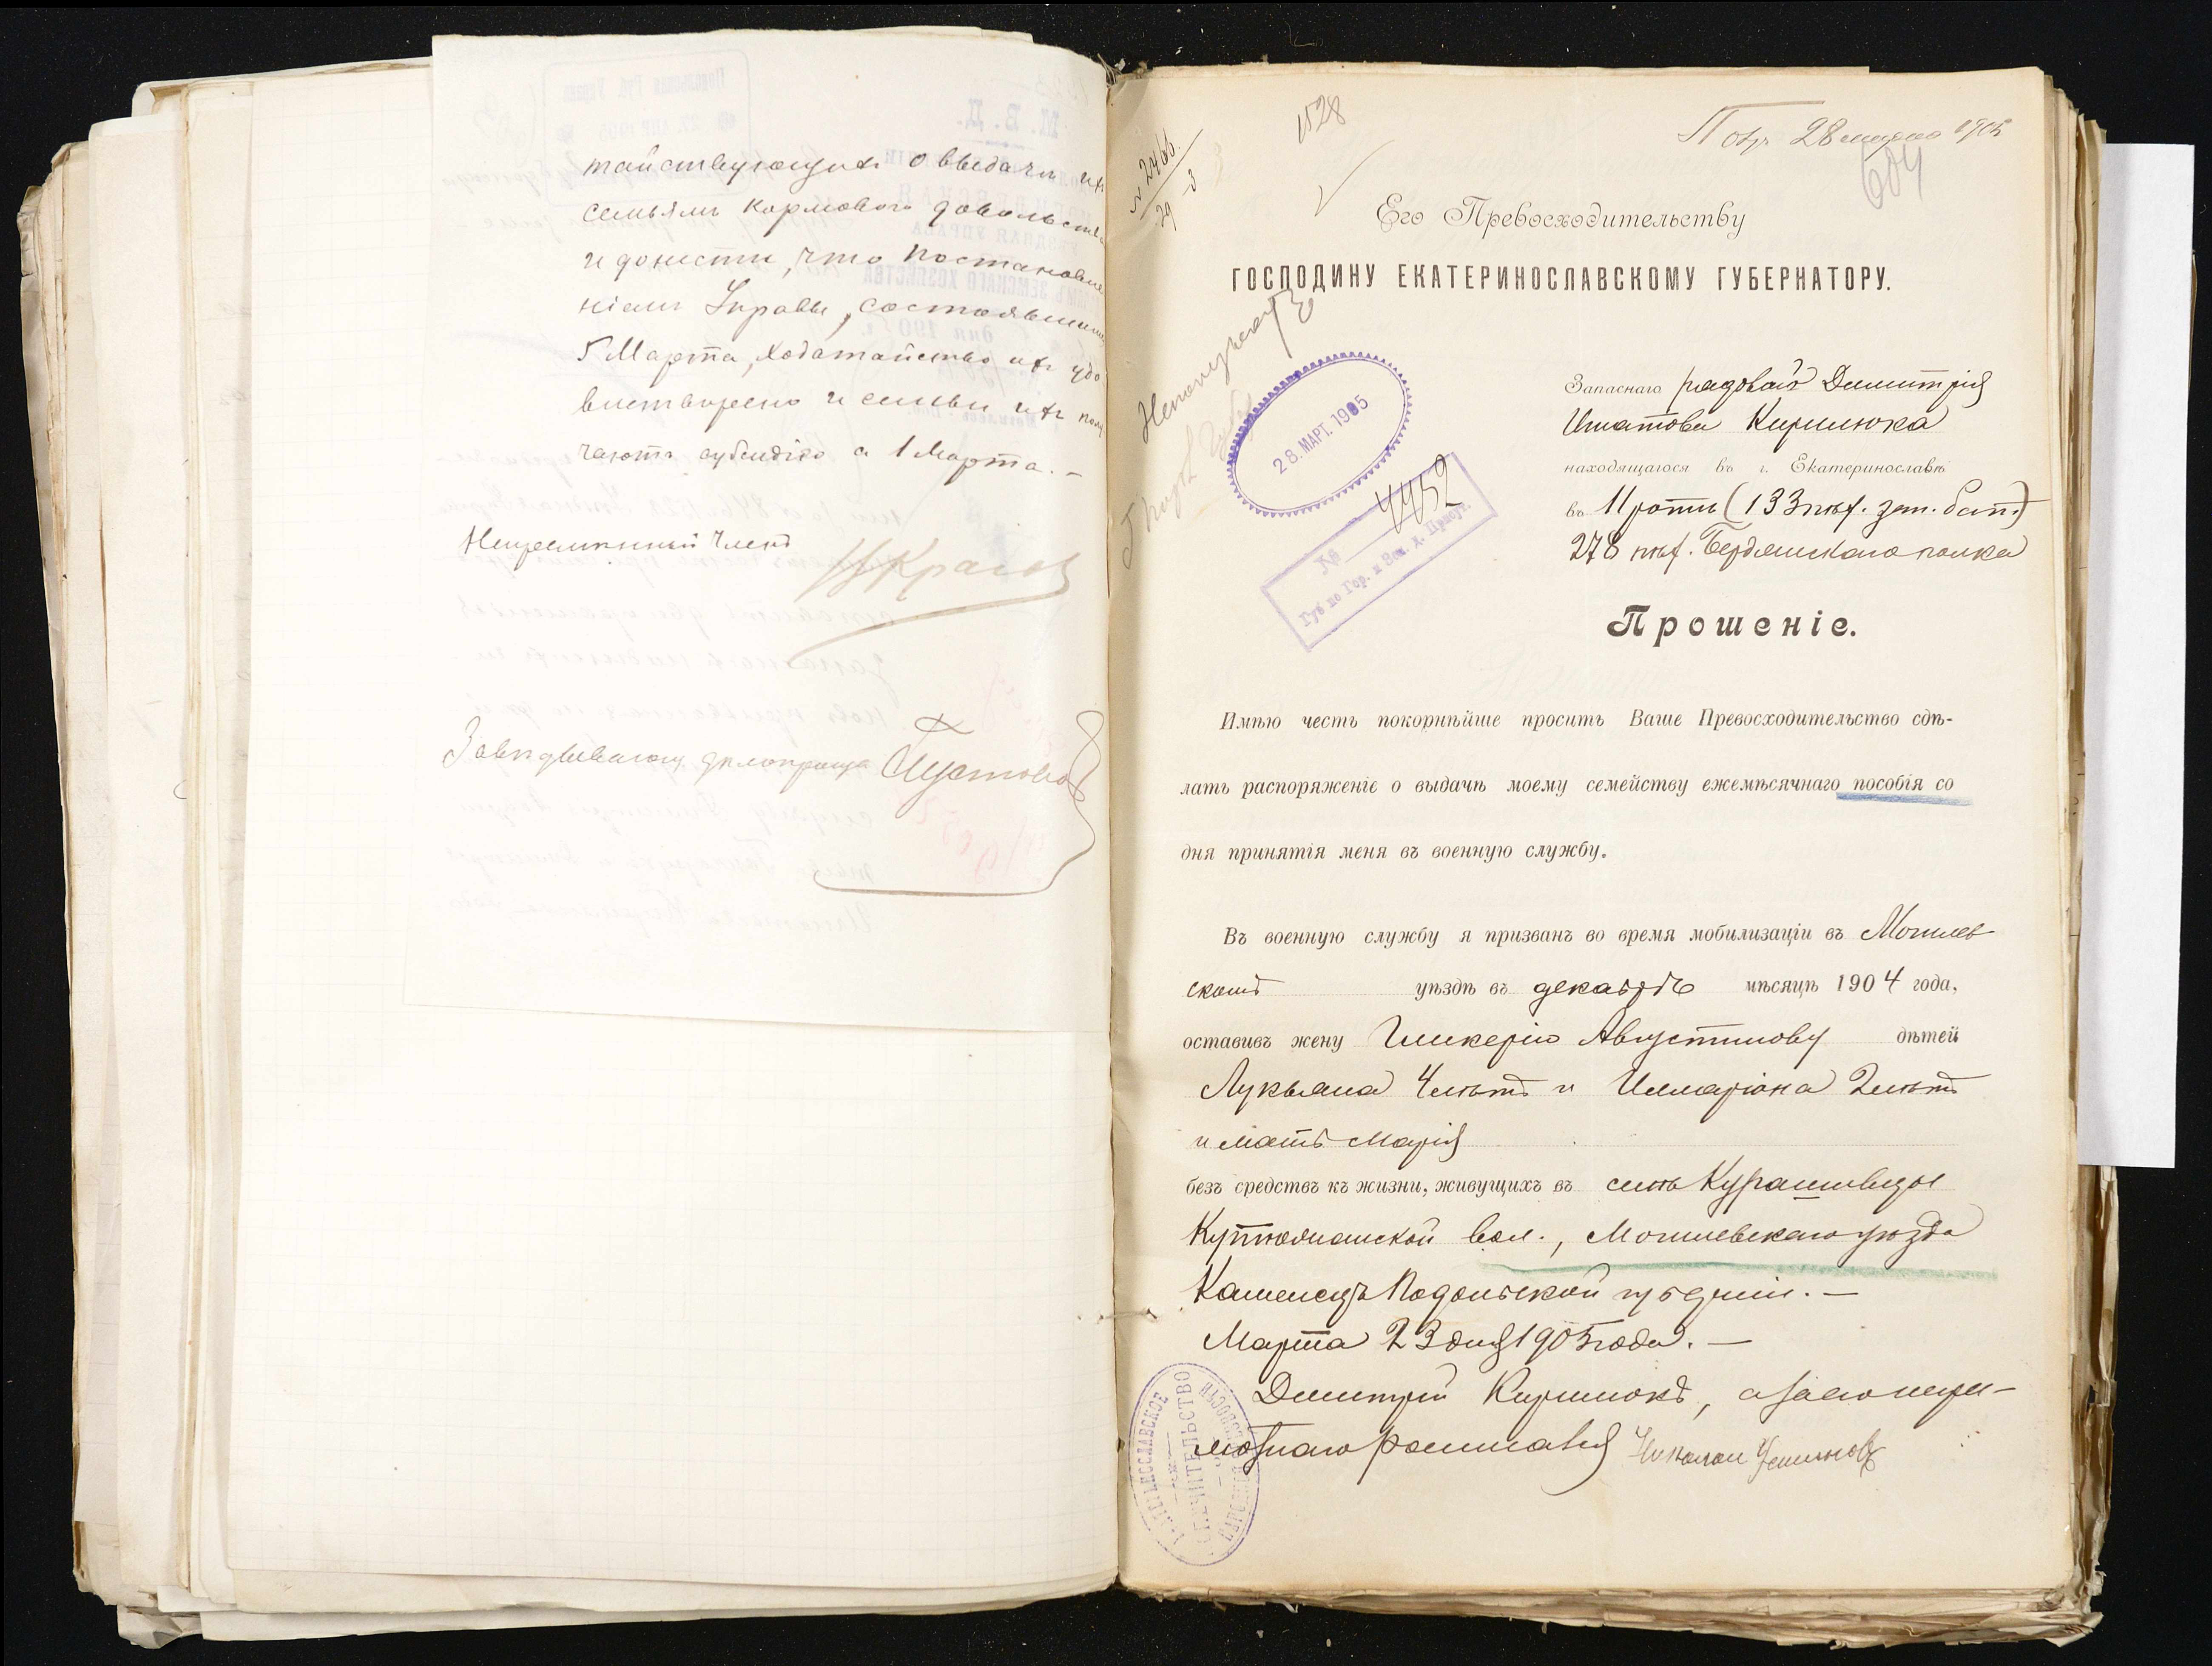 тайствующихъ о выдачѣ ихъ
семьямъ кормового довольств
и донести, что постановле
ніемъ Управы, состоявшимся
5 Марта, ходатайство ихъ удо
влетворено и семьи ихъ полу
чаютъ субсидію съ 1 Марта. –
Непремѣнный Членъ
Завѣдывающ. дѣлопроизв.
№ 2466
29 3
1528
28 марта 1905
604
Его Превосходительству
ГОСПОДИНУ ЕКАТЕРИНОСЛАВСКОМУ ГУБЕРНАТОРУ.
28. МАРТ. 1905
4452
№
Губ по Гор. и Зем. д. Присут.
Запаснаго рядового Димитрія
Игнатова Кирилюка
находящагося въ г. Екатеринославѣ
въ 11 ротѣ (133 пѣх. зап. бат.)
278 пѣх. Бердянскаго полка
Прошеніе.
Имѣю честь покорнѣйше просить Ваше Превосходительство сдѣ-
лать распоряженіе о выдачѣ моему семейству ежемѣсячнаго пособія со
дня принятія меня въ военную службу.
Въ военную службу я призванъ во время мобилизаціи въ Могилев
скомъ уѣздѣ въ декабрѣ мѣсяцѣ 1904 года,
оставивъ жену Гликерію Августинову дѣтей
Лукьяна 4 лѣтъ и Илларіона 2 лѣтъ
и мать Марія
безъ средствъ къ жизни, живущихъ въ селѣ Курашовцы
вол., Могилевскаго уѣзда
Каменецъ Подольской губерніи. –
Марта 23 дня 1905 года. –
Дмитрій Кирилюкъ, а за его негра-
мотнаго росписался Николай